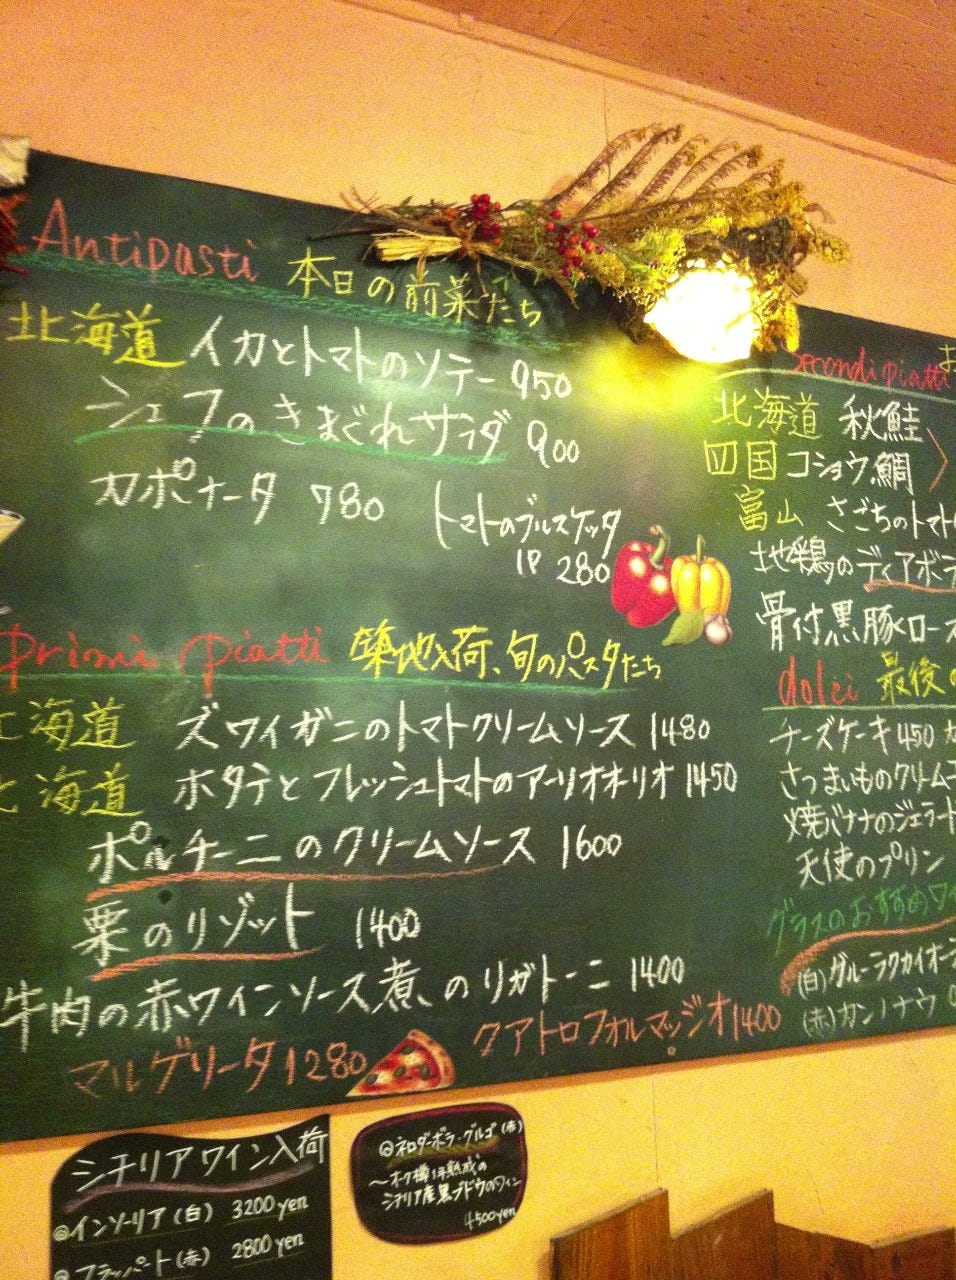 Antipasti 本日の前菜たち
北海道 イカとトマトのソテー 950
シェフのきまぐれサラダ 900
カポナータ 780
トマトのブルスケッタ
1P 280
primi piatti 築地入荷、旬のパスタたち
北海道 ズワイガニのトマトクリームソース 1480
北海道 ホタテとフレッシュトマトのアーリオオーリオ 1450
ポルチーニのクリームソース 1600
栗のリゾット 1400
牛肉の赤ワインソース煮、のリガトーニ 1400
マルゲリータ 1280
クアトロフォルマッジオ 1400
Secondi piatti お
北海道 秋鮭
四国 コショウ鯛
富山 さごちのトマト
地鶏のディアボラ
骨付黒豚ロース
dolci 最後の
チーズケーキ 450 カ
さつまいものクリーム
焼バナナのジェラート
天使のプリン
グラスのおすすめワ
(白) グルーラクカイオー
(赤) カンノナウ
シチリアワイン入荷
@インソーリア(白) 3200yen
@フラッパート(赤) 2800yen
@ネロダーボラ・グルゴ(赤)
〜オーク樽1年熟成の
シチリア産黒ブドウのワイン
4500yen